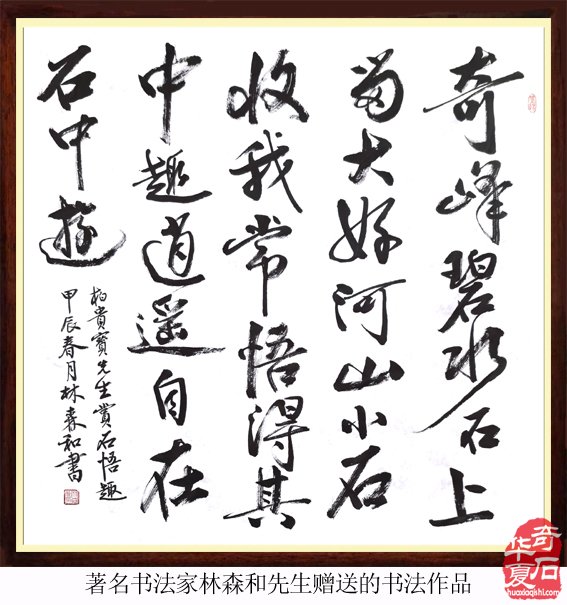 奇峰碧水石上
留大好河山小石
收我常悟得其
中趣逍遥自在
石中遊
柏貴寳先生賞石悟趣
甲辰春月林森和書
著名书法家林森和先生赠送的书法作品
华夏奇石
huaxiaqishi.com